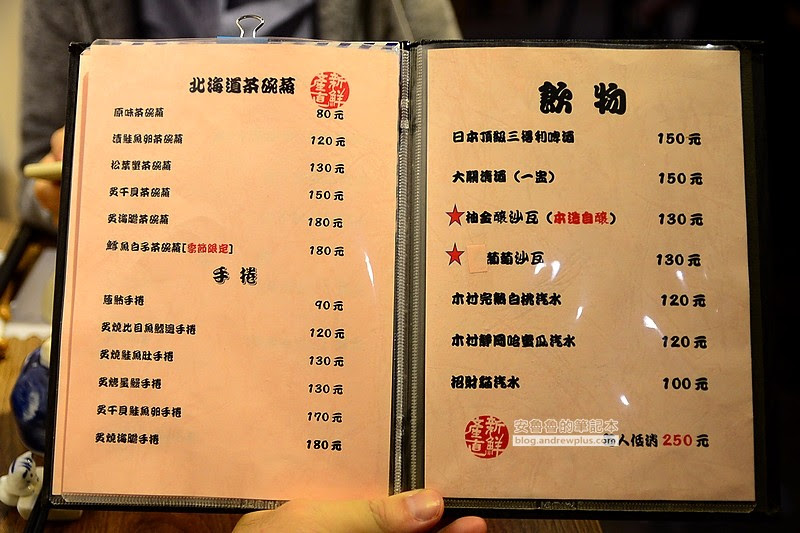 北海道茶碗蒸
新鮮
產直
原味茶碗蒸 80元
漬鮭魚卵茶碗蒸 120元
松葉蟹茶碗蒸 130元
炙干貝茶碗蒸 150元
炙海膽茶碗蒸 180元
鱈魚白子茶碗蒸[季節限定] 180元
手捲
極鮪手捲 90元
炙燒比目魚鰭邊手捲 120元
炙燒鮭魚肚手捲 130元
炙烤星鰻手捲 130元
炙干貝鮭魚卵手捲 170元
炙燒海膽手捲 180元
飲物
日本頂級三得利啤酒 150元
大關清酒(一盅) 150元
★柚金釀沙瓦(本造自釀) 130元
★葡萄沙瓦 130元
木村完熟白桃汽水 120元
木村靜岡哈蜜瓜汽水 120元
招財貓汽水 100元
新鮮
產直
人低消250元
安魯魯的筆記本
blog.andrewplus.com